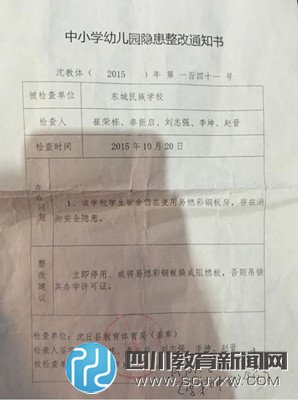 中小学幼儿园隐患整改通知书
沈教体（ 2015 ）年 第 一百四十一 号
被检查单位 东城民族学校
检查人 崔荣栋、秦振启、刘志强、李坤、赵晋
检查时间 2015年10月20日
存在问题
1、该学校学生宿舍仍在使用易燃彩钢板房，存在消
防安全隐患。
整改建议
立即停用、或将易燃彩钢板换成阻燃板，否则吊销
其办学许可证。
检查单位：沈丘县教育体育局（盖章）
刘志强、李坤、赵晋
四川教育新闻网
WWW.SCJYXW.COM